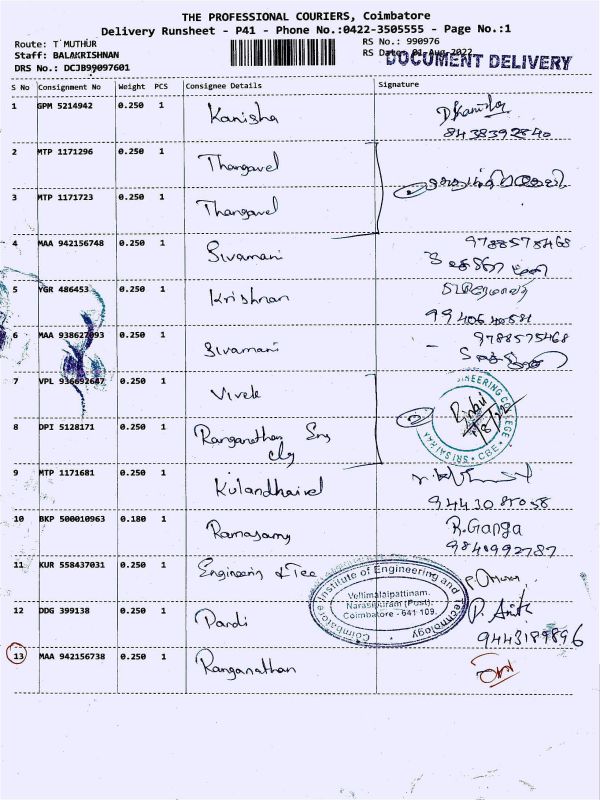 THE PROFESSIONAL COURIERS, Coimbatore
Delivery Runsheet - P41 - Phone No.:0422-3505555 - Page No.:1
Route: T MUTHUR
RS No.: 990976
Staff: BALAKRISHNAN
RS Date: 01-Aug-2022
DOCUMENT DELIVERY
DRS No.: DCJB99097601
S No Consignment No Weight PCS Consignee Details Signature
1 GPM 5214942 0.250 1 Kanisha
8438392840
2 MTP 1171296 0.250 1 Thangavel
3 MTP 1171723 0.250 1 Thangavel
4 MAA 942156748 0.250 1 Sivamani 9788578468
5 YGR 486453 0.250 1 Krishnan
9940640581
6 MAA 938627093 0.250 1 Sivamani 9788575468
7 VPL 936692647 0.250 1 Vivek
8 DPI 5128171 0.250 1 Ranganathan Eng
clg
9 MTP 1171681 0.250 1 Kulandhaivel
9443087058
10 BKP 500010963 0.180 1 Ramasamy R.Ganga
9840992787
11 KUR 558437031 0.250 1 Engineering & Tec
Coimbatore Institute of Engineering and Technology
Vellimalaipattinam,
Narasipuram (Post),
Coimbatore - 641 109.
12 DDG 399138 0.250 1 Pandi
9443189896
13 MAA 942156738 0.250 1 Ranganathan